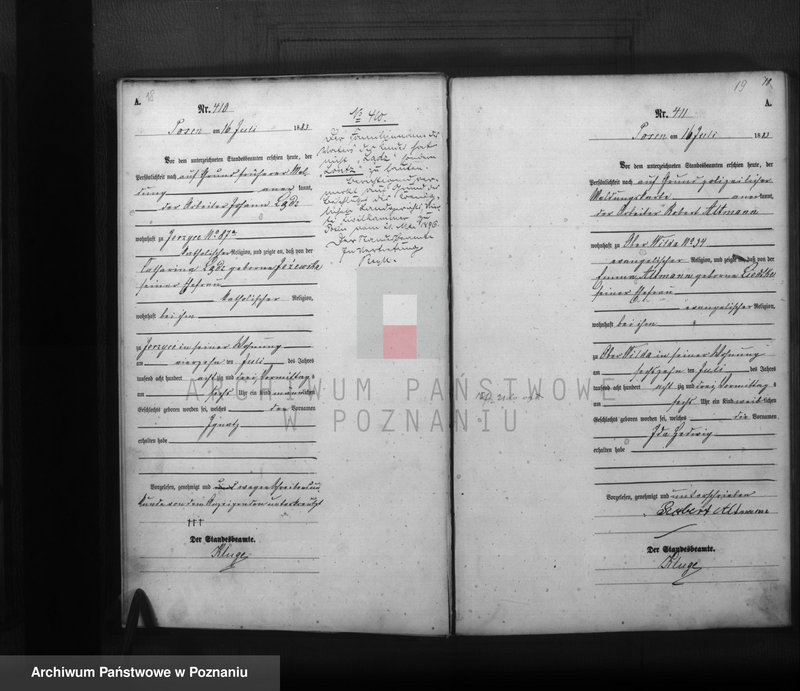 A.
Nr. 410
Posen am 16 Juli 1883
Vor dem unterzeichneten Standesbeamten erschien heute, der
Persönlichkeit nach auf Grund früherer Mel-
dung aner kannt,
der Arbeiter Johann
wohnhaft zu Jerzyce No 87
katholischer Religion, und zeigte an, daß von der
Catharina geborene
seiner Ehefrau
katholischer Religion,
wohnhaft bei ihm
zu Jerzyce in seiner Wohnung
am vierzehn ten Juli des Jahres
tausend acht hundert acht zig und drei Vormittag s
um sechs Uhr ein Kind männlichen
Geschlechts geboren worden sei, welches den Vornamen
Ignatz
erhalten habe
Vorgelesen, genehmigt und wegen Schreibensun-
kunde von dem Anzeigenden unterkreuzt
+++
Der Standesbeamte.
Kluge
No 410.
Der Familienname des
Vaters des Kindes hat
nicht sondern
zu lauten.
Berichtigend ver-
merkt auf Grund des
Beschlusses des Königlichen Landgerichts
Civilkammer zu
Posen vom 21. Mai 1896.
Der Standesbeamte
In Vertretung
19
A.
Nr. 411
Posen am 16 Juli 1883
Vor dem unterzeichneten Standesbeamten erschien heute, der
Persönlichkeit nach auf Grund polizeilicher
Meldungskarte aner kannt,
der Arbeiter Robert Altmann
wohnhaft zu Ober Wilda No 34
evangelischer Religion, und zeigte an, daß von der
Emma Altmann geborene
seiner Ehefrau
evangelischer Religion,
wohnhaft bei ihm
zu Ober Wilda in seiner Wohnung
am sechszehn ten Juli des Jahres
tausend acht hundert acht zig und drei Vormittag s
um sechs Uhr ein Kind weiblichen
Geschlechts geboren worden sei, welches die Vornamen
Ida Hedwig
erhalten habe
Vorgelesen, genehmigt und unterschrieben
Robert Altmann
Der Standesbeamte.
Kluge
ARCHIWUM PAŃSTWOWE
W POZNANIU
Archiwum Państwowe w Poznaniu